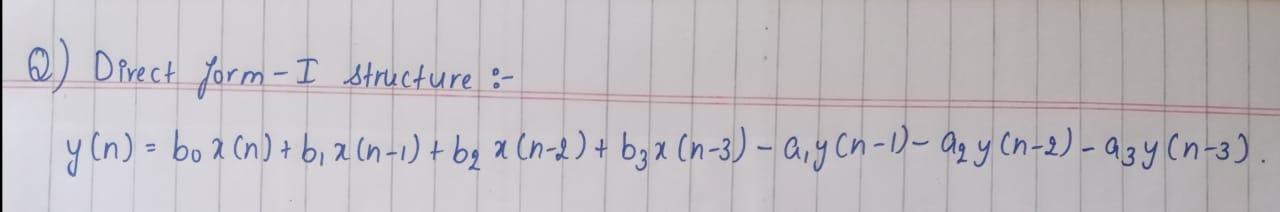 Q) Direct form-I structure :-
y(n) = b₀ x(n) + b₁ x(n-1) + b₂ x(n-2) + b₃ x(n-3) - a₁y(n-1) - a₂ y(n-2) - a₃y(n-3).